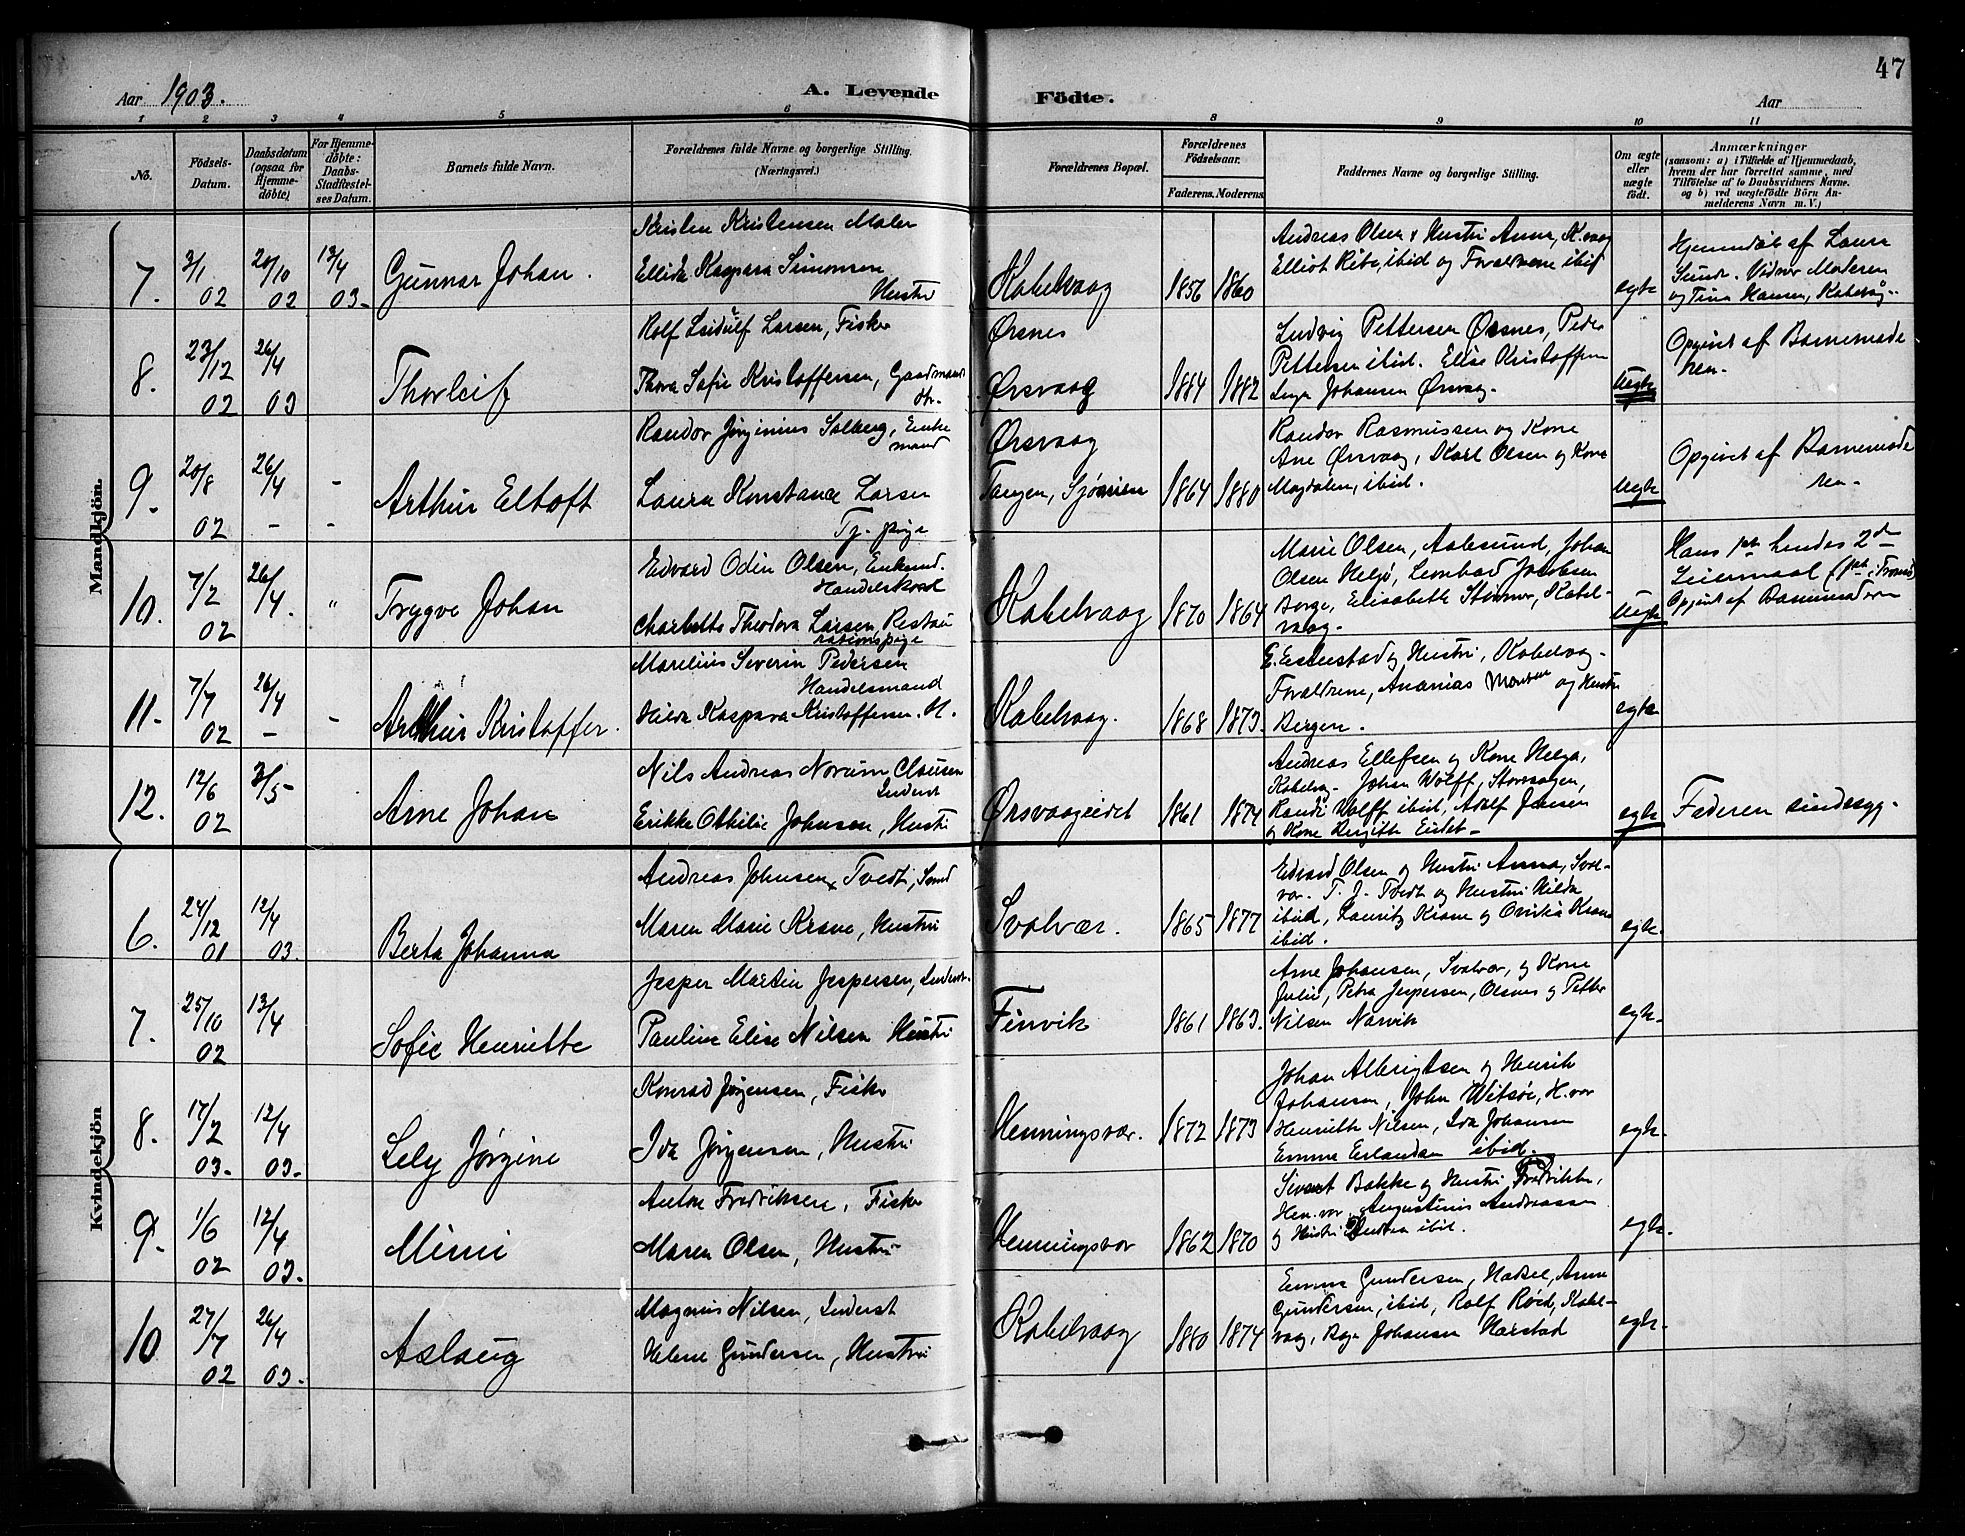 47
Aar 1903. A. Levende Födte. Aar
1 2 3 4 5 6 8 9 10 11
No. Födsels-Datum. Daabsdatum (ogsaa for Hjemme-döbte). For Hjemme-döbte: Daabs-Stadfæstel-ses Datum. Barnets fulde Navn. Forældrenes fulde Navne og borgerlige Stilling. (Næringsvei.) Forældrenes Bopæl. Forældrenes Födselsaar. Faderens. Moderens. Faddernes Navne og borgerlige Stilling. Om ægte eller uægte födt. Anmærkninger
(saasom: a) i Tilfælde af Hjemmedaab,
hvem der har forrettet samme, med
Tilföielse af to Daabsvidners Navne.
og b) ved uægtefödte Börn An-
melderens Navn m. V.)
Mandkjön.
7. 3/1 02 20/10 02 13/4 03. Gunnar Johan.
Kristen Kristensen Maler
Ellida Kaspara Simonsen
Hustr
Kabelvaag 1856 1860
Andreas Olsen & Hustri Anna, K.vaag
Elliot Ribe, ibid og Forældrene ibid
egte
Hjemdøbt af Laura
Sund. Vidner Moderen
og Tina Hansen, Kabelvåg.
8. 23/12 02 26/4 03 Thorleif
Rolf Leidulf Larsen, Fisker
Thora Sofie Kristoffersen, Gaardmands
dtr.
Ørsnes
Ørsvaag 1884 1882
Ludvig Pettersen Ørsnes, Peder
Pettersen ibid. Elise Kristoffersen
Johansen Ørsvaag.
Uegte
Opgivet af Barnemode
ren.
9. 20/8 02 26/4 - - - Arthur Eltoft
Randor Jørginius Solberg, Enke
mand
Laura Konstance Larsen
Tj. pige
Ørsvaag
Tangen, 1864 1880
Randor Rasmussen og Kone
Ane Ørsvaag, Karl Olsen og Kone
Magdalen, ibid.
Uegte
Opgivet af Barnemode
ren.
10. 7/2 02 26/4. " Trygve Johan
Edvard Odin Olsen, Enkemd.
Charlotte Theodora Larsen, Restau
rationspige
Kabelvaag 1870 1864
Marie Olsen, Aalesund, Johan
Olsen Helgø, Leonhard Jacobsen
Borge, Elisabeth Kabel-
vaag.
Uegte
Hans 1ste hendes 2den
Leiermaal (1ste i Tromsø)
Opgivet af Barnemoderen
11. 7/7 02 26/4 - - Arthur Kristoffer.
Marelius Severin Pedersen
Handelsmand
Hilda Kaspara Kristoffersen. H.
Kabelvaag. 1868 1873.
og Hustri, Kabelvaag.
Forældrene, Ananias Monsen og Hustri
Bergen.
egte
12. 12/6 02 3/5 Arne Johan
Nils Andreas Norum Clausen
Inderst
Erikke Othilie Johnsen, Hustri
Ørsvaageidet 1861 1874
Andreas Ellefsen og Kone Helga,
Kabelvag. Johan Wolff, Storvaagen,
Randi Wolff ibid, Adolf Jensen
og Kone Birgitte Eidet.
egte
Faderen sindssyg.
Kvindekjön
6. 24/12 01 12/4 03. Berta Johanna
Andreas Johnsen Tvedt, Smed
Maren Marie Krane, Hustri
Svolvær. 1865 1877
Edvard Olsen og Hustri Anna, Svol-
vær. T. J. Tvedt og Hustri Hilda
ibid, Lauritz Krane og Krane
ibid.
egte.
7. 25/10 02 13/4 Sofie Henriette
Jesper Martin Jespersen, Inderst.
Pauline Elise Nilsen Hustri
Finvik 1861 1863.
Arne Johansen, Svolvær, og Kone
Julie, Petra Jespersen, Olsnes og Petter
Nilsen Narvik
egte.
8. 17/2 03. 12/4 03. Lely Jørgine
Konrad Jørgensen, Fisker
Ida Jørgensen, Hustri
Henningsvær. 1872 1873
Johan Albrigtsen og Henrik
Johansen, John Witsøe, H.vær
Henriette Nilsen, Ida Johansen
Emma Erlandsen ibid.
egte.
9. 1/6 02 12/4 03. Mimi
Anton Fredriksen, Fisker
Maren Olsen, Hustri
Henningsvær 1862 1870
Sivert Bakke og Hustri Fredrikke,
Hen.vær, Augustinus Andreassen
og Hustri ibid.
egte.
10 27/7 02 26/4 03. Aslaug
Magnus Nilsen, Inderst
Helene Gundersen, Hustri
Kabelvaag 1880 1874
Emma Gundersen, Hadsel, Anna
Gundersen, ibid, Rolf Røed, Kabel-
vaag, Johansen Harstad
egte.